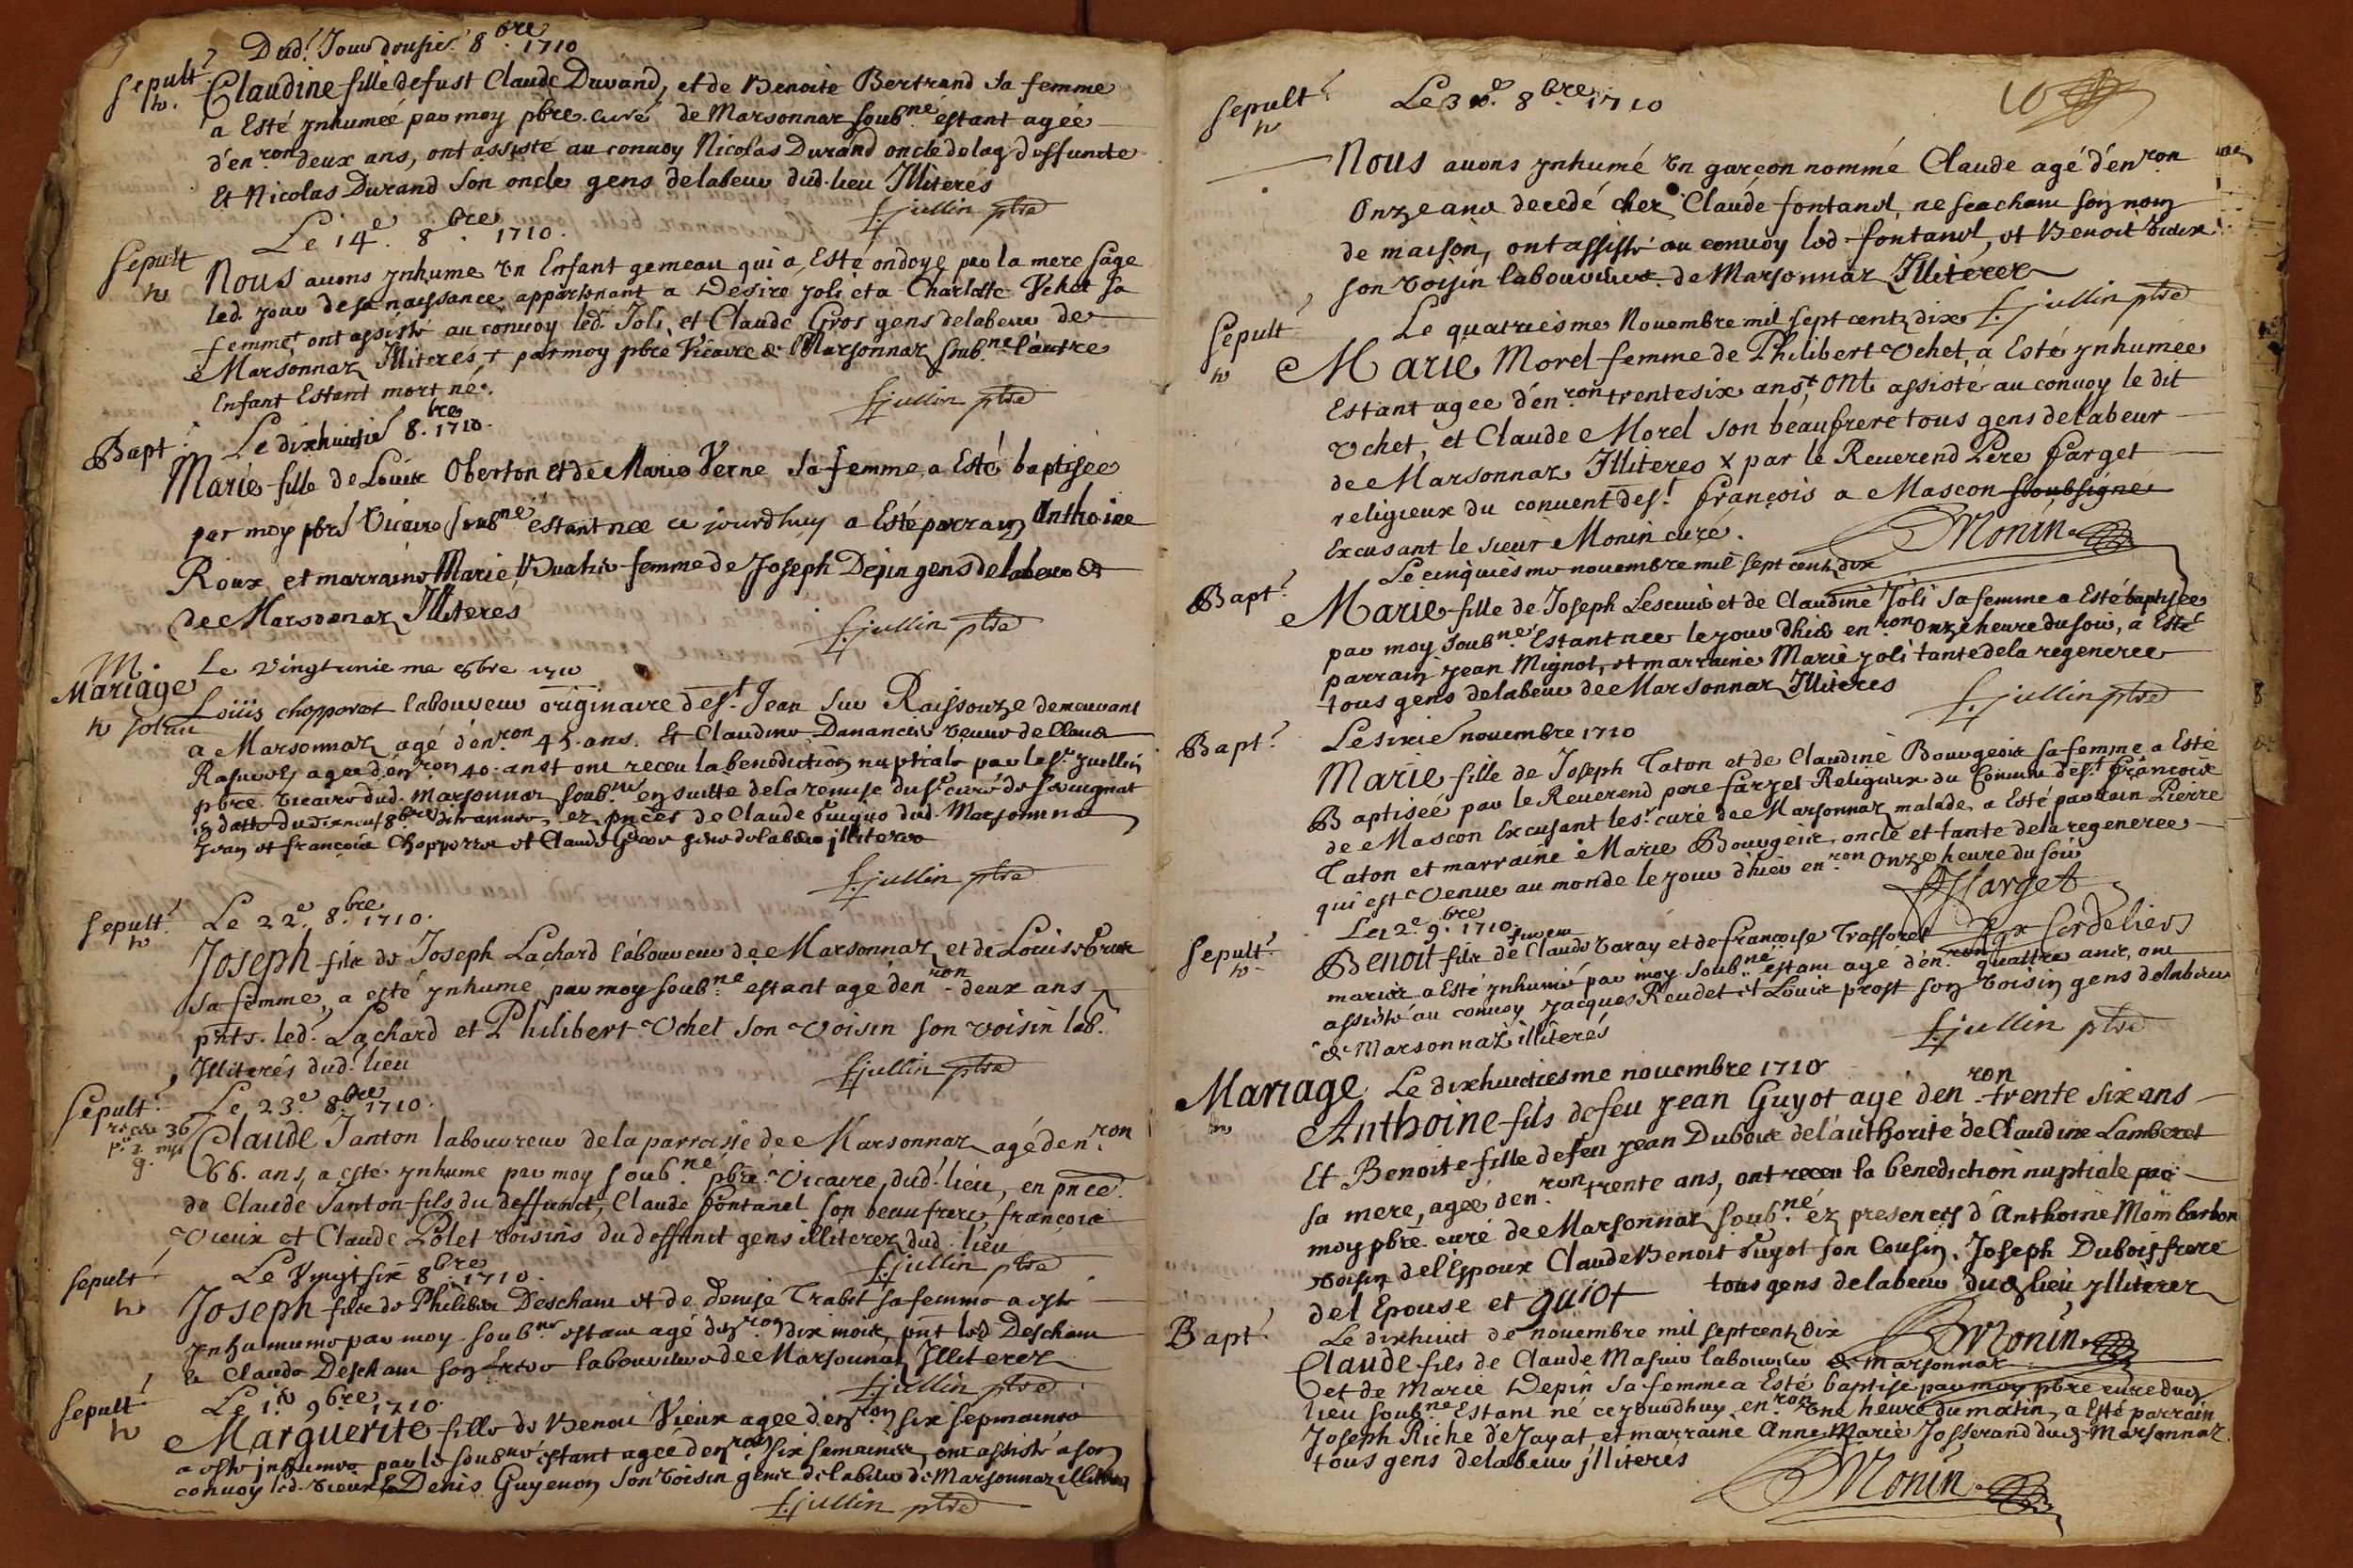 Dud.t Jour dousie. 8.bre 1710
Sepult.e Claudine fille defust Claude Durand, et de Benoite Bertrand sa femme
a Esté ynhumée par moy pbre. curé de Marsonnaz soub.né estant agée
d'en.ron deux ans, ont assisté au conuoy Nicolas Durand oncle delad deffuncte
Et Nicolas Durand son oncle gens delabeur dud. lieu Illiterés
f. jullin ptre
Le 14.e 8.bre 1710.
Sepult Nous auons ynhume Vn Enfant gemeau qui a Esté ondoyé par la mere sage
led. jour de sa naissance appartenant a Desire joli et a Charlotte Vchet sa
femme + ont assisté au conuoy led. Joli, et Claude Gros gens delabeur de
Marsonnaz Illiterés + par moy pbre Vicaire de Marsonnaz soub.né l'autre
Enfant Estant mort né.
f. jullin ptre
Bapt.e Le dixhuitie 8.bre 1710.
Marie fille de Louis Oberton et de Marie Verne sa femme a Esté baptisée
par moy pbre Vicaire soub.né estant née ce jourdhuy a Esté parrain Anthoine
Roux et marraine Marie femme de Joseph Depin gens delabeur
de Marsonnaz Illiterés
f. jullin ptre
M. Le vingtunieme 8bre 1710
Mariage Loüis chopparet laboureur originaire de s.t Jean sur Raissouze demeurant
a Marsonnaz agé d'en.ron 45. ans. Et Claudine Danancie veuue de Claud
agee d'en.ron 40. ans + ont receu la benediction nuptiale par le s.r Juellin
pbre vicaire dud. marsonnaz soub.né en suitte de la remise du s.r curé de
en datte du dixneuf 8bre ez pnces de Claude dud. Marsonna
Jean et francois Chopparet et Claude Gros gens delabeur jlliteres
f. jullin ptre
Sepult.e Le 22.e 8.bre 1710.
Joseph fils de Joseph Lachard laboureur de Marsonnaz et de Louise
sa femme, a esté ynhumé par moy soub.né estant agé d'en.ron deux ans
pnts. led. Lachard et Philibert Vchet son voisin son voisin lab.
Illiterés dud. lieu
f. jullin ptre
Sepult.e Le 23.e 8.bre 1710.
Claude Janton laboureur de la parroisse de Marsonnaz agé d'en.ron
66. ans, a esté ynhume par moy soub.né pbre Vicaire, dud. lieu, en pnce.
de Claude Janton fils du deffunct, Claude fontanel son beaufrere, françois
Vieux et Claude Polet voisins du deffunct gens illiterez dud. lieu
f. jullin ptre
Sepult Le Vingt six 8.bre 1710.
Joseph fils de Philibert Descham et de denise Trabet sa femme a esté
par moy soub.né estant agé d'en.ron dix mois, pnt led Descham
et Claude Descham son laboureurs de Marsonnaz Illiterez
f. jullin ptre
Sepult Le 1.r 9.bre 1710.
Marguerite fille de Benoit Vieux agee d'en.ron six sepmaines
a esté inhumee par le soub.né estant agée d'en.ron six semaines, ont assisté a son
conuoy led. vieux & Denis Guyenon son voisin gens delabeur de Marsonnaz illiteres
f. jullin ptre
10
Sepult.e Le 30.e 8.bre 1710
Nous auons ynhumé Vn garçon nommé Claude agé d'en.ron
Onze ans decedé chez Claude fontanel, ne scachant son nom
de maison, ont assisté au conuoy led fontanel, et Benoit vieux
son voisin laboureurs de Marsonnaz Illiterez
f. jullin ptre
Sepult.e Le quatriesme Nouembre mil sept centz dix
Marie Morel femme de Philibert Vchet, a Esté ynhumée
Estant agee d'en.ron trente six ans +, ont assisté au conuoy le dit
Vchet, et Claude Morel son beaufrere tous gens delabeur
de Marsonnaz Illiteres x par le Reuerend Pere farget
religieux du conuent de s.t françois a Mascon soubsigné
Excusant le sieur Monin curé.
Monin
Le cinquiesme nouembre mil sept cent dix
Bapt.e Marie fille de Joseph Lescuié et de Claudine Joli sa femme a Esté baptisée
par moy soub.né Estant nee le jour dhier en.ron Onze heure du soir, a Esté
parrain jean Mignot, et marraine Marie joli tante de la regeneree
tous gens delabeur de Marsonnaz Illiteres
f. jullin ptre
Bapt.e Le sixie nouembre 1710
Marie fille de Joseph Taton et de Claudine Bourgeois sa femme a Esté
Baptiseé par le Reuerend pere farget Religieux du Conuent de s.t francois
de Mascon Excusant le s.r curé de Marsonnaz malade, a Esté parrain Pierre
Taton et marraine Marie Bourgeois, oncle et tante de la regeneree
qui est Venue au monde le jour dhier en.ron Onze heure du soir
f farget
Cordeliers
Le 12.e 9.bre 1710.
Sepult.e Benoit fils de Claude varay et de francoise Trafforet
mariez a Esté ynhumé par moy soub.né estant agé d'en.ron quattre ans, ont
assisté au conuoy Jacques Reudet et Louis prost son voisin gens delabeur
de Marsonnaz illiterés
f. jullin ptre
Mariage Le dixhuictiesme nouembre 1710
Anthoine fils defeu jean Guyot agé d'en.ron trente six ans
Et Benoite fille defeu jean Dubois de l'authorité de Claudine Lamberet
sa mere, ageé d'en.ron trente ans, ont receu la benediction nuptiale par
moy pbre curé de Marsonnaz soub.né ez presences d'Anthoine Mombarbon
voisin de l'Epoux Claude Benoit Guyot son Cousin. Joseph Dubois frere
del Epouse et guiot tous gens delabeur dud lieu jlliterez
Monin
Bapt.e Le dixhuict de nouembre mil sept centz dix
Claude fils de Claude Masuir laboureur de marsonnaz
et de Marie Depin sa femme a Esté baptisé par moy pbre curé dud
lieu soub.né Estant né ce jourdhuy en.ron vne heure du matin, a Esté parrain
Joseph Riche de Jayat, et marraine Anne Marie Josserand dud. Marsonnaz.
tous gens delabeur jlliterés
Monin